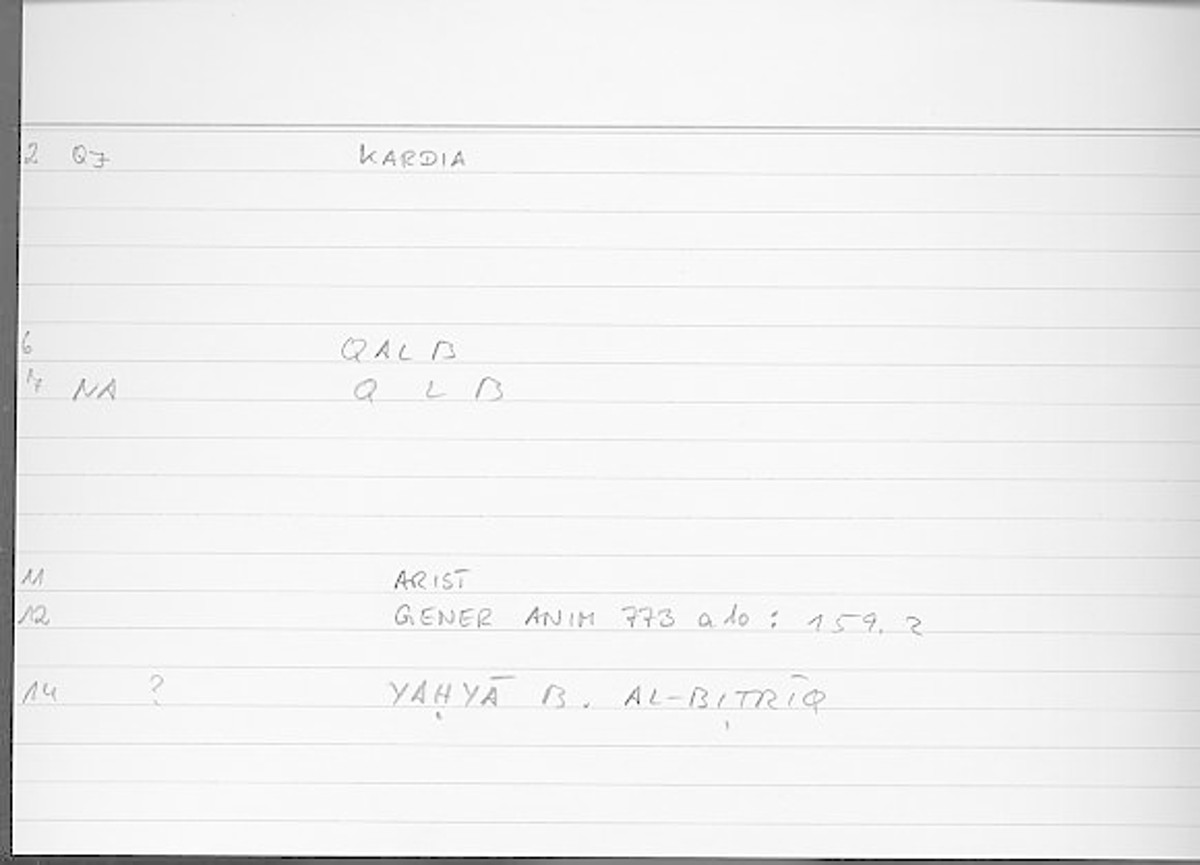 2 Q7 KARDIA
6 QALB
17 NA Q L B
11 ARIST
12 GENER ANIM 773 a 10 : 159. 2
14 ? YAḤYĀ B. AL-BIṬRĪQ